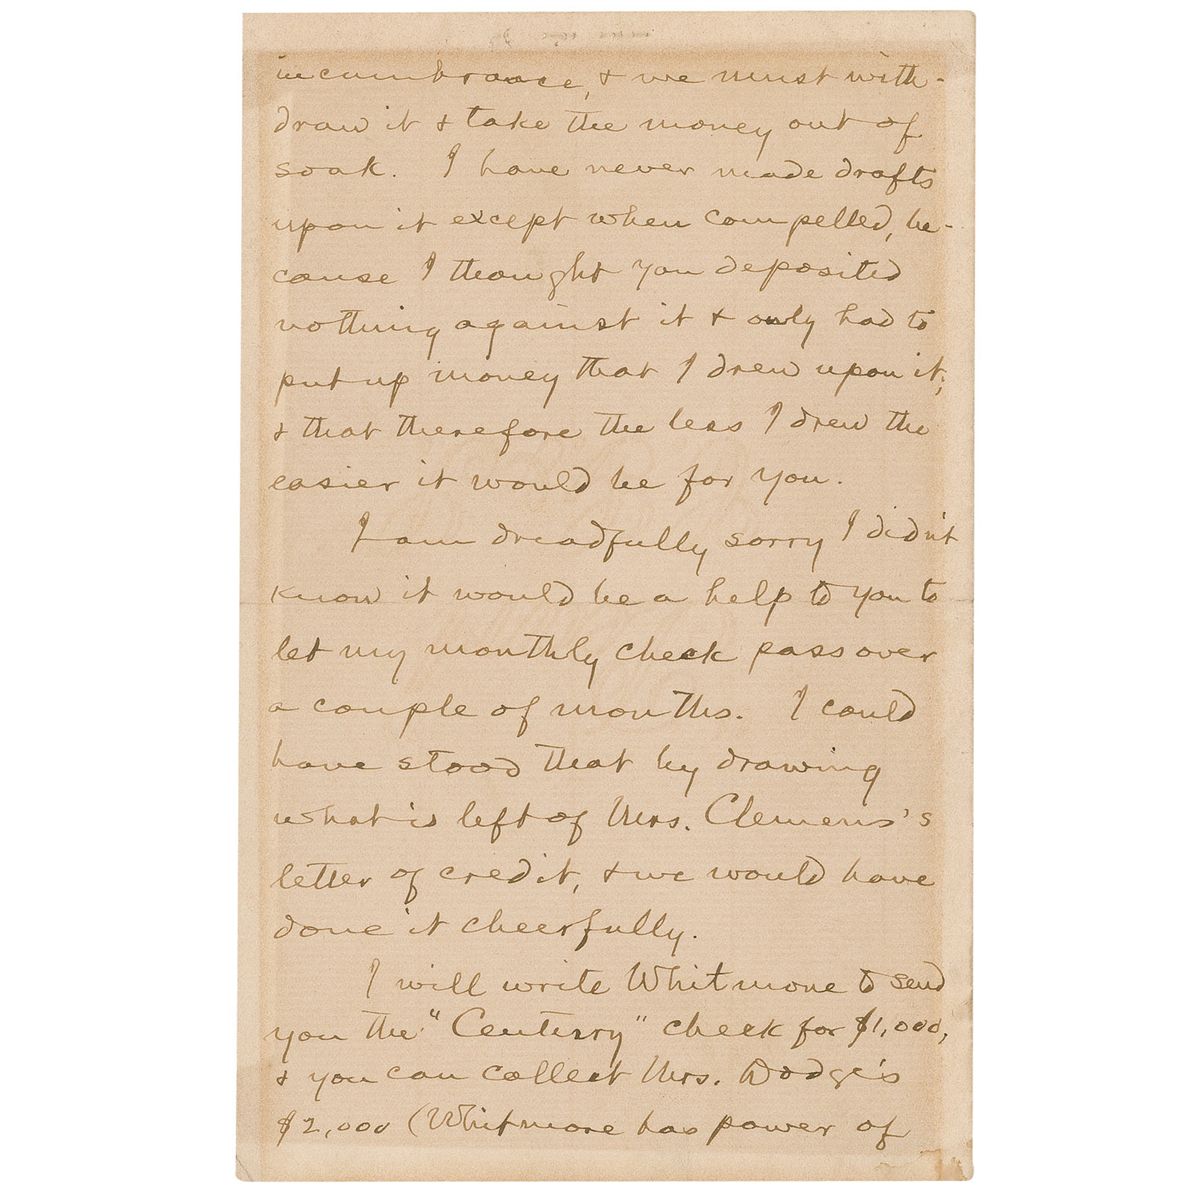 incumbrance, & we must with-
draw it & take the money out of
soak. I have never made drafts
upon it except when compelled, be-
cause I thought you deposited
nothing against it & only had to
put up money that I drew upon it;
& that therefore the less I drew the
easier it would be for you.
I am dreadfully sorry I didn't
know it would be a help to you to
let my monthly check pass over
a couple of months. I could
have stood that by drawing
what is left of Mrs. Clemens's
letter of credit, & we would have
done it cheerfully.
I will write Whitmore to send
you the "Century" check for $1,000,
& you can collect Mrs. Dodge's
$2,000 (Whitmore has power of